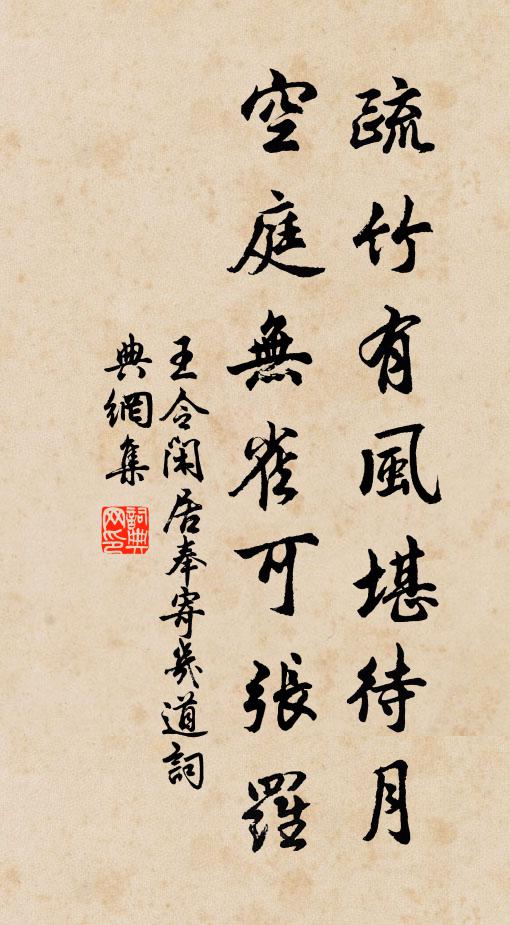 疏竹有風堪待月
空庭無雀可張羅
王令閑居奉寄幾道詞
典網集
詞典
网印